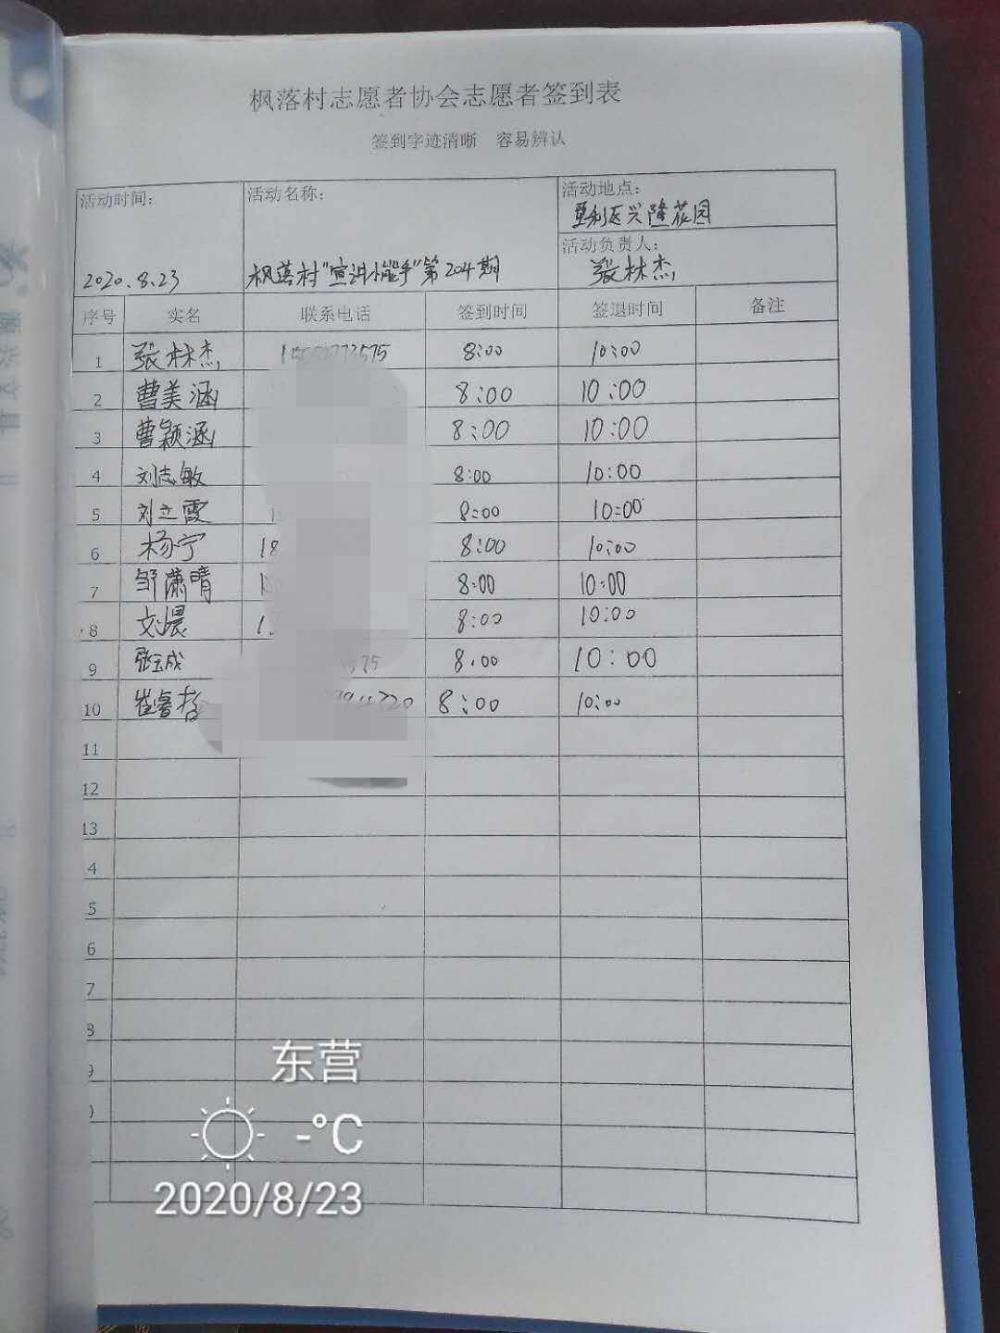 枫落村志愿者协会志愿者签到表
签到字迹清晰 容易辨认
活动时间： 活动名称： 活动地点：
垦利区兴隆花园
活动负责人：
2020.8.23 枫落村"宣讲小能手"第204期 张林杰
序号 实名 联系电话 签到时间 签退时间 备注
1 张林杰 8:00 10:00
2 曹美涵 8:00 10:00
3 曹颖涵 8:00 10:00
4 刘志敏 8:00 10:00
5 刘立霞 8:00 10:00
6 杨宁 18 8:00 10:00
7 邹潇晴 8:00 10:00
8 刘晨 8:00 10:00
9 张玉成 75 8:00 10:00
10 8:00 10:00
11
12
13
4
5
6
7
8
9
0
东营
-°C
2020/8/23